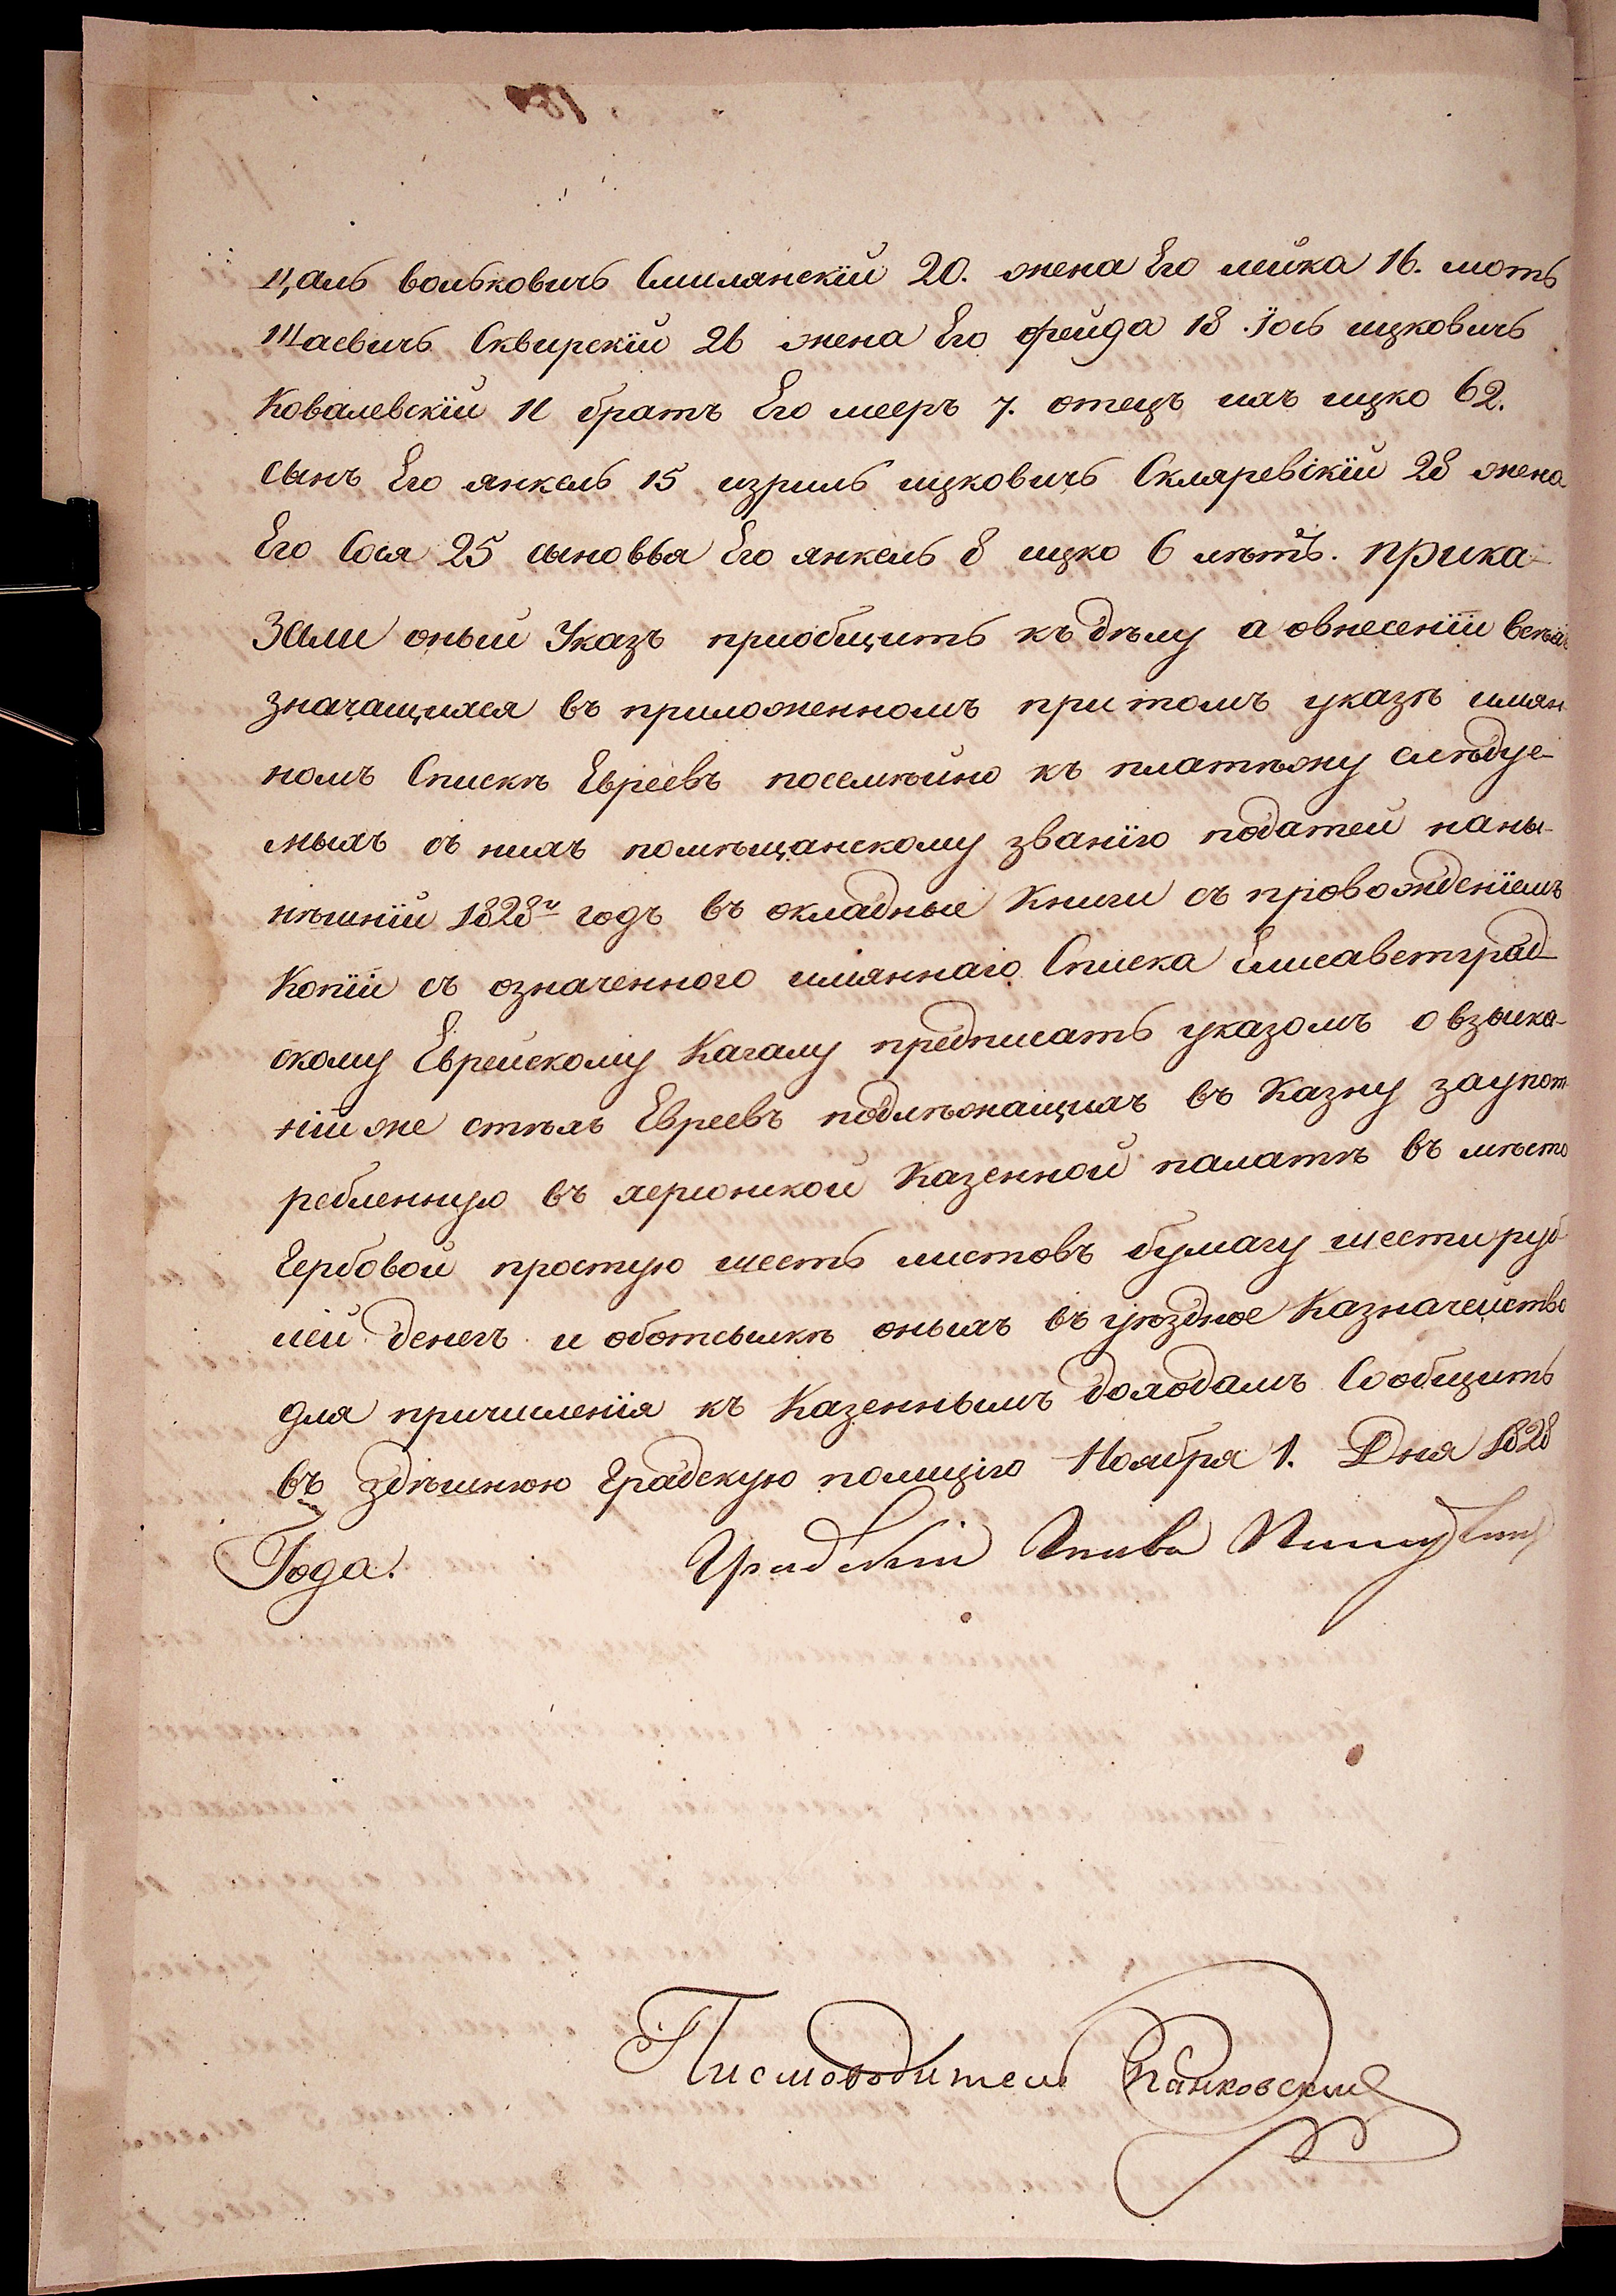 цаль вольковичъ Смилянскій 20. жена Его лейка 16. моть
Шаевичъ Сквирскій 26 жена Его фейда 18. Їось ицковичъ
Ковалевскій 11 братъ Его мееръ 7. отецъ ихъ ицко 62.
сынъ Его янкель 15 изриль ицковичъ Скляревскій 28 жена
Его Сося 25 сыновья Его янкель 8 ицко 6 лѣтъ. прика-
зали оный Указъ приобщить къ дѣлу а овнесеніи всѣхъ
значащихся въ приложенномъ при томъ указѣ имян
номъ Спискѣ Евреевъ посемѣйно къ платежу слѣдуе-
мыхъ съ нихъ помѣщанскому званію податей наны-
нѣшній 1828й годъ въ окладные Книги съ провожденіемъ
Копіи съ означенного имяннаго Списка Елисаветград-
скому Еврейскому Кагалу предписать указомъ о взыска-
ніи же стѣхъ Евреевъ подлежащихъ въ Казну заупот
ребленную въ херсонской Казенной палатѣ въ мѣсто
Гербовой простую шесть листовъ бумагу шести руб
лей денегъ и оботсылкѣ оныхъ въ уѣздное Казначейство
для причисленія къ Казеннымъ доходамъ Сообщить
въ здѣшнюю Градскую полицію Ноября 1. Дня 1828
Года.
Градскій Глава
Писмоводитель